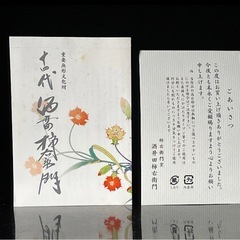 重要無形文化財
十四代 酒井田柿右衛門
ごあいさつ
この度はお買い上げ頂きありがとうございました。
今後とも末永くご愛顧賜りますよう心よりお願い
申し上げます。
柿右衛門窯
酒井田柿右衛門